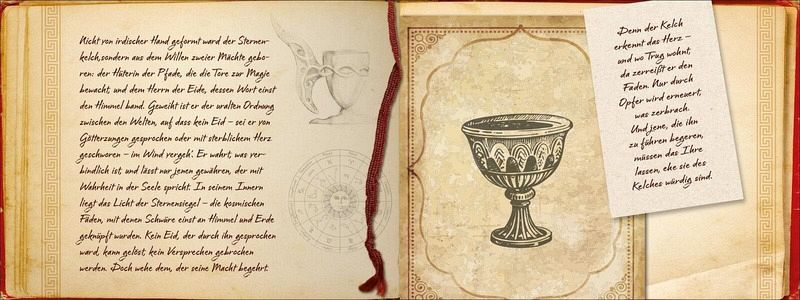 Nicht von irdischer Hand geformt ward der Sternen-
kelch, sondern aus dem Willen zweier Mächte gebo-
ren: der Hüterin der Pfade, die die Tore zur Magie
bewacht, und dem Herrn der Eide, dessen Wort einst
den Himmel band. Geweiht ist er der uralten Ordnung
zwischen den Welten, auf dass kein Eid – sei er von
Götterzungen gesprochen oder mit sterblichem Herz
geschworen – im Wind vergeh'. Er wahrt, was ver-
bindlich ist, und lässt nur jenen gewähren, der mit
Wahrheit in der Seele spricht. In seinem Innern
liegt das Licht der Sternensiegel – die kosmischen
Fäden, mit denen Schwüre einst an Himmel und Erde
geknüpft wurden. Kein Eid, der durch ihn gesprochen
ward, kann gelöst, kein Versprechen gebrochen
werden. Doch wehe dem, der seine Macht begehrt.
Denn der Kelch
erkennt das Herz –
und wo Trug wohnt,
da zerreißt er den
Faden. Nur durch
Opfer wird erneuert,
was zerbrach.
Und jene, die ihn
zu führen begeren,
müssen das Ihre
lassen, ehe sie des
Kelches würdig sind.